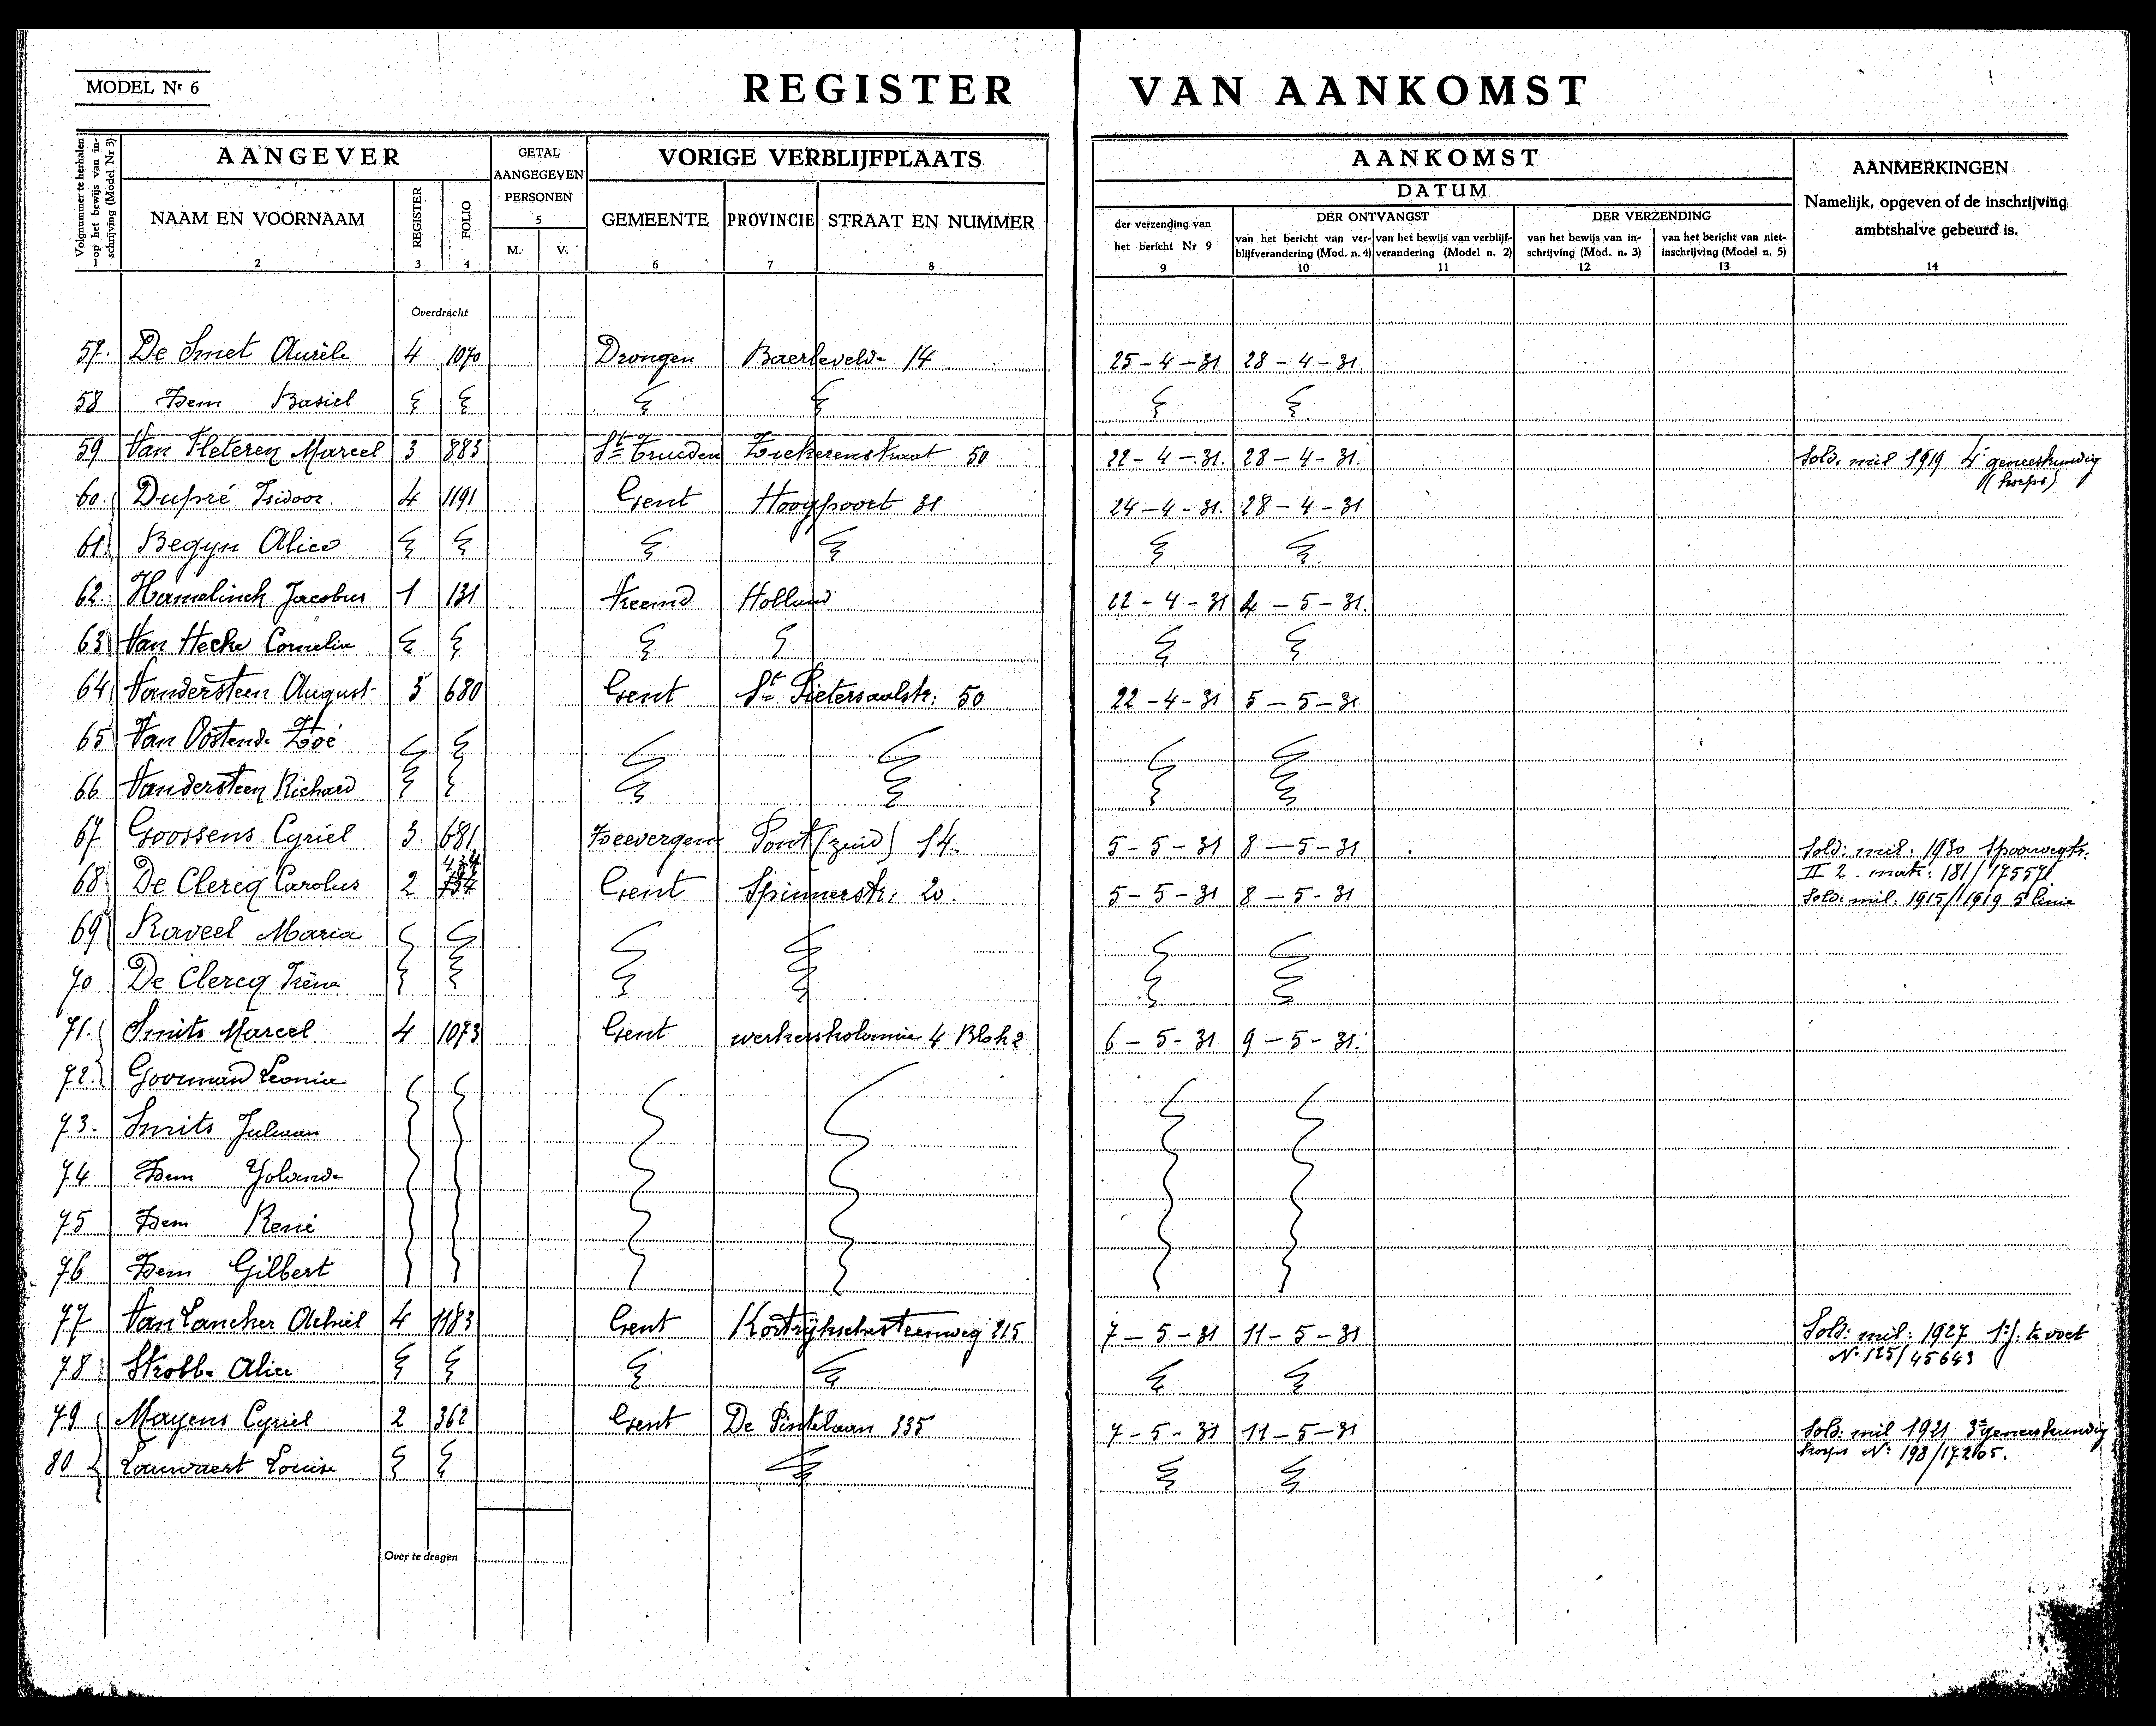 MODEL Nr 6
REGISTER VAN AANKOMST
Volgnummer te herhalen op het bewijs van inschrijving (Model Nr 3)
AANGEVER
GETAL AANGEGEVEN PERSONEN
VORIGE VERBLIJFPLAATS
AANKOMST
AANMERKINGEN
DATUM
Namelijk, opgeven of de inschrijving ambtshalve gebeurd is.
NAAM EN VOORNAAM REGISTER FOLIO M. V. GEMEENTE PROVINCIE STRAAT EN NUMMER
der verzending van het bericht Nr 9
DER ONTVANGST
DER VERZENDING
van het bericht van verblijfverandering (Mod. n. 4)
van het bewijs van verblijfverandering (Model n. 2)
van het bewijs van inschrijving (Mod. n. 3)
van het bericht van niet-inschrijving (Model n. 5)
1 2 3 4 5 6 7 8 9 10 11 12 13 14
Overdracht
57. De Smet Aurèle 4 1070 Drongen Baerleveld- 14 25-4-31 28-4-31.
58 Idem Basiel
59 Van Fleteren Marcel 3 883 St Truiden 50 22-4-31. 28-4-31. Sold. mil 1919 4e geneeskundig
(korps)
60. Dupré Isidoor. 4 1191 Gent Hoogpoort 31 24-4-31. 28-4-31
61 Begyn Alice
62. Hamelinck Jacobus 1 131 Vreemd Holland 22-4-31 4-5-31.
63 Van Hecke Cornelia
64 Vandersteen August 3 680 Gent St Pietersaalstr: 50 22-4-31 5-5-31
65 Van Oostende Zoé
66 Vandersteen Richard
67 Goossens Cyriel 3 681 Zeevergem Pont (zuid) 14. 5-5-31 8-5-31 Sold: mil: 1930 Spoorwegtr.
II 2. matr: 181/17557
68 De Clercq Carolus 2 434 Gent Spinnerstr. 20. 5-5-31 8-5-31 Sold: mil: 1915/1919 5e linie
69 Raveel Maria
70 De Clercq Irène
71. Smits Marcel 4 1073 Gent werkerskolonie 4 Blok 2 6-5-31 9-5-31.
72. Goorman Leonie
73. Smits Julman
74 Idem Yolande
75 Idem René
76 Idem Gilbert
77 Van Lancker Achiel 4 1183 Gent Kortrijkschesteenweg 215 7-5-31 11-5-31 Sold: mil: 1927 1e j. te voet
No 125/45643
78 Strobbe Alice
79 Mayens Cyriel 2 362 Gent De Pintelaan 335 7-5-31 11-5-31 Sold: mil 1921 3e geneeskundig
korps No: 198/17265.
80 Lauwaert Louise
Over te dragen